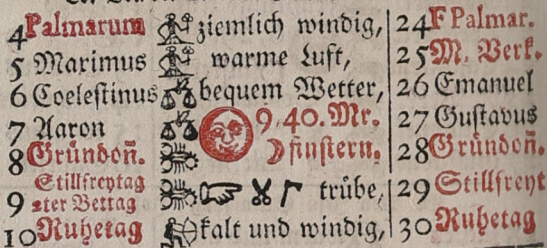 4 Palmarum ziemlich windig, 24 F Palmar.
5 Maximus warme Luft, 25 M. Verk.
6 Coelestinus bequem Wetter, 26 Emanuel
7 Aaron 9,40. Mr. 27 Gustavus
8 Gründoñ. ☽ finstern. 28 Gründoñ.
Stillfreytag
9 2ter Bettag trübe, 29 Stillfreyt
10 Ruhetag kalt und windig, 30 Ruhetag